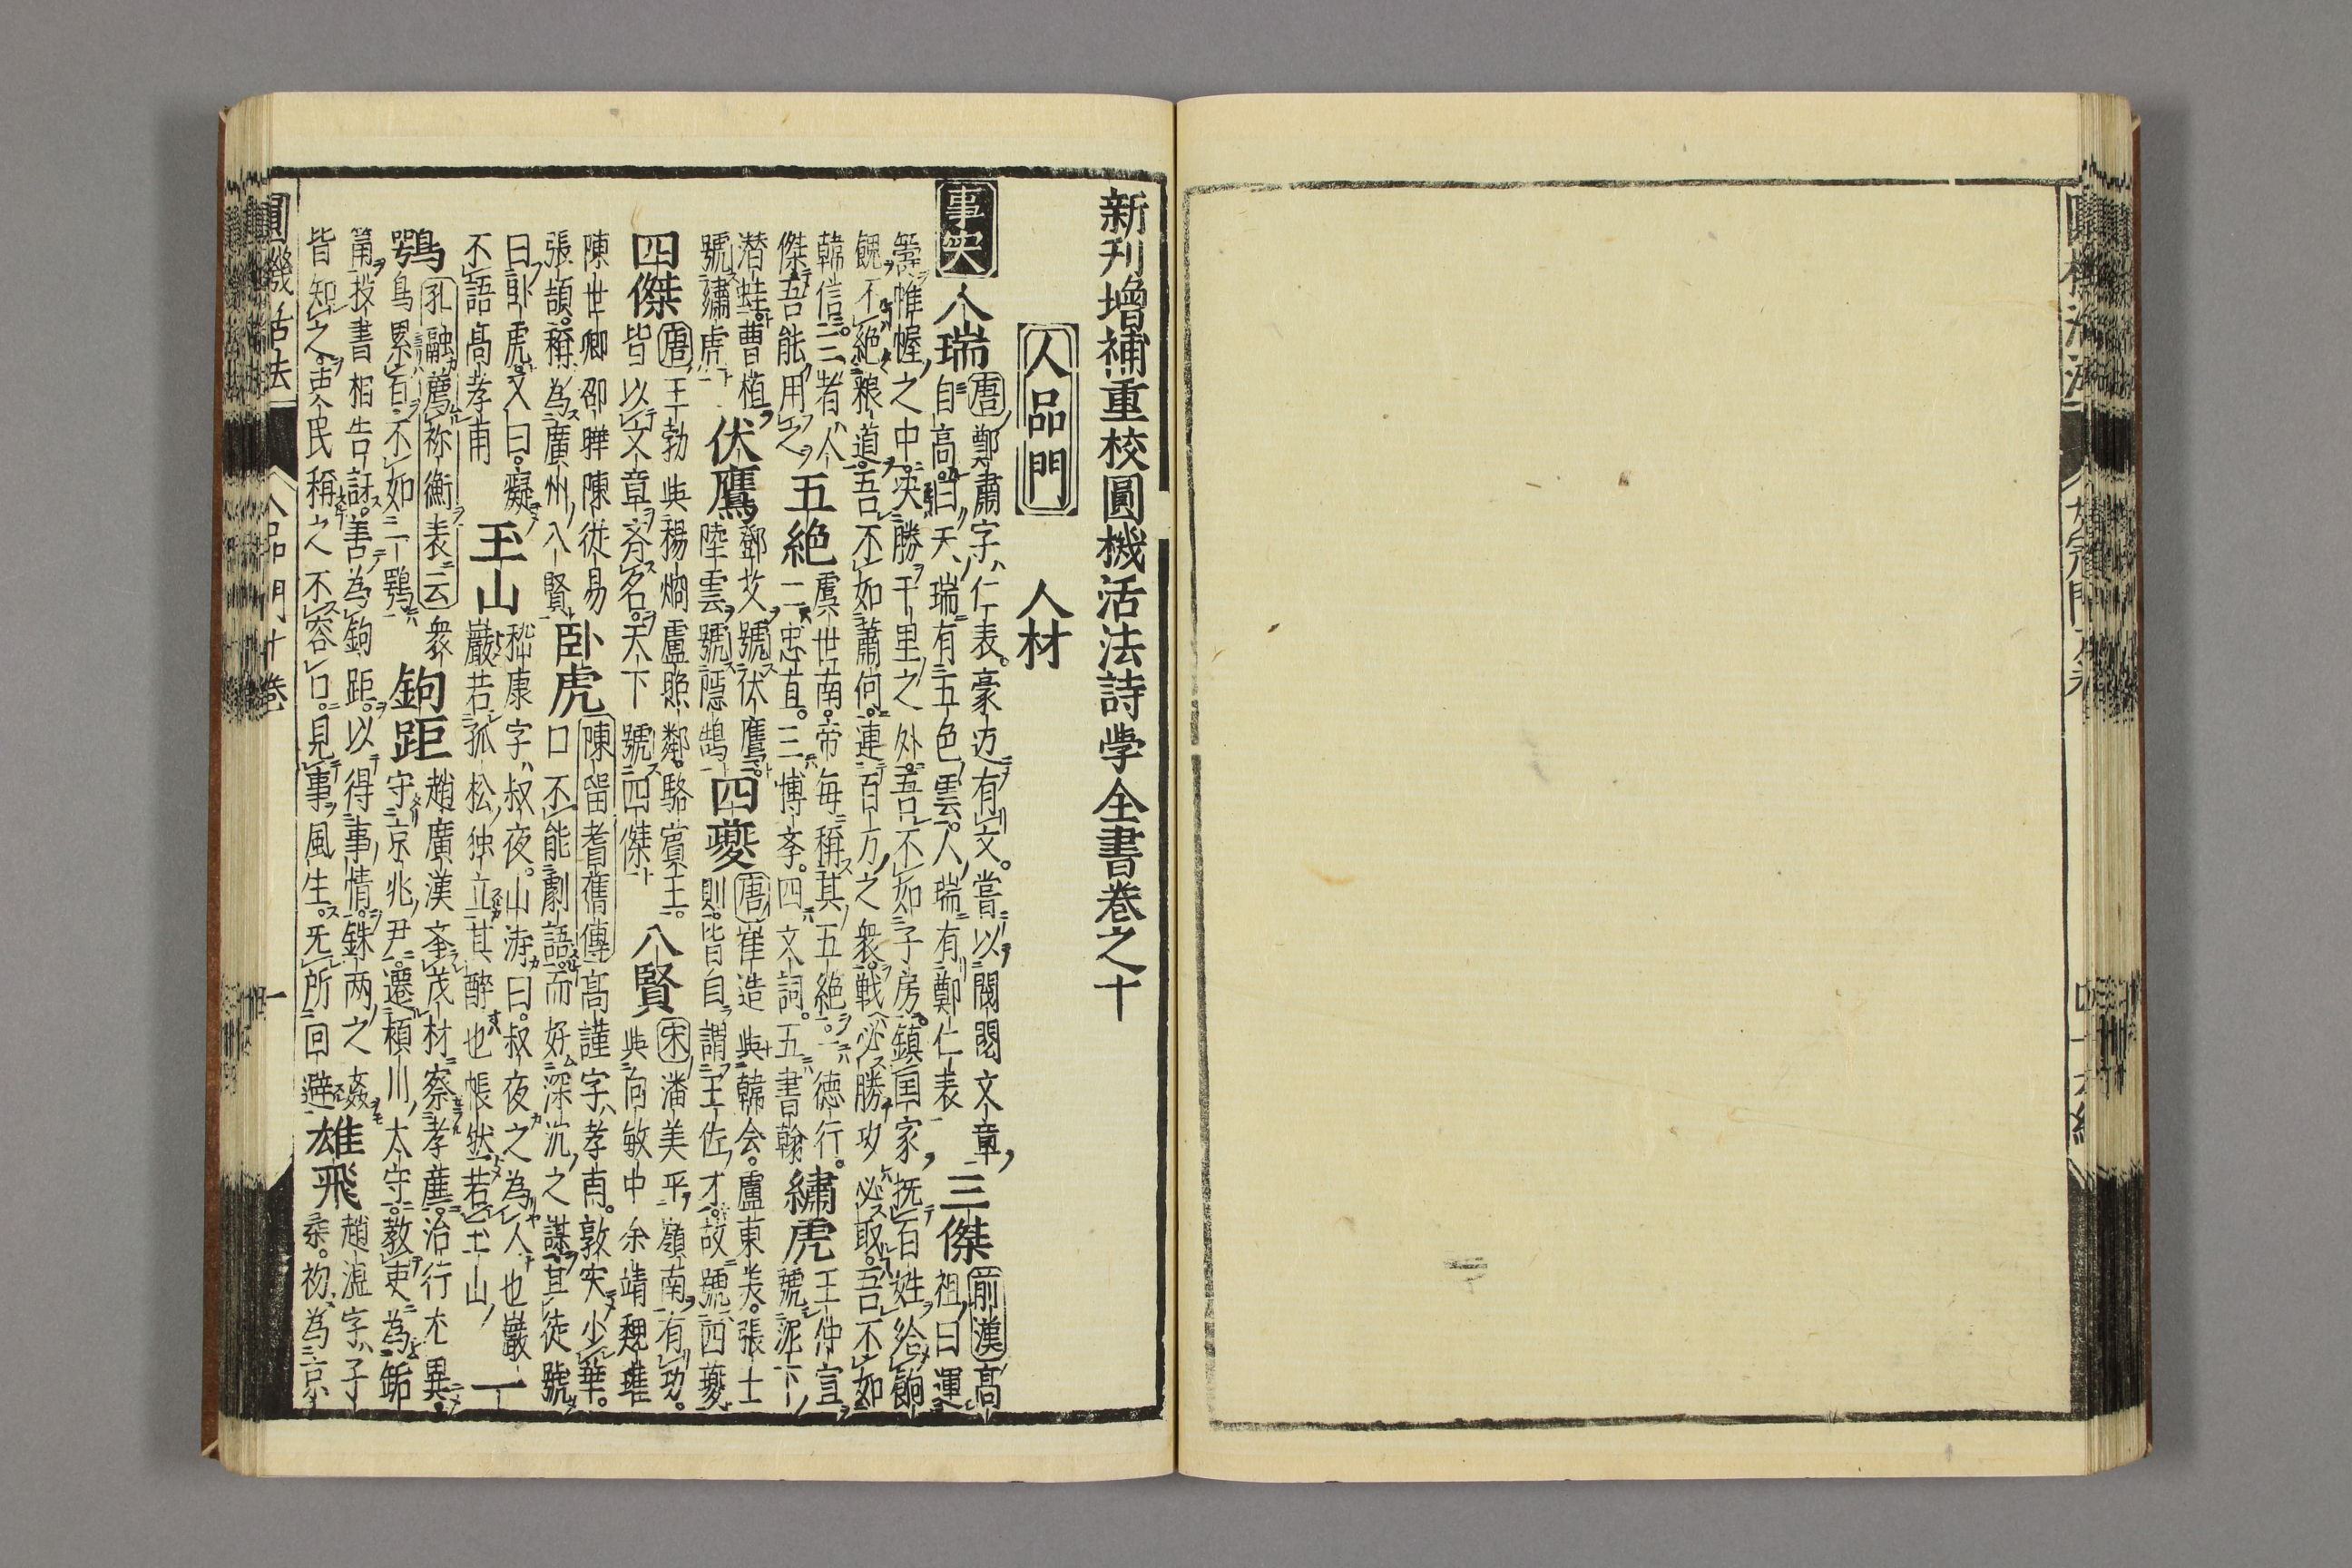 新刊增補重校圓機活法詩学全書巻之十
人品門　人材
事実　人瑞　唐鄭肅字仁表豪迈有文嘗以閥閲文章
自高曰天瑞有五色雲人瑞有鄭仁表　三傑　前漢高
祖曰運
籌帷幄之中决勝千里之外吾不如子房鎮国家抚百姓给餉
餽不絶粮道吾不如蕭何連百万之衆戦必勝攻必取吾不如
韓信三者人
傑吾能用之　五絶　虞世南帝毎稱其五絶一徳行
二忠直三博斈四文詞五書翰　繡虎　王仲宣
號泥下
潜蛙曹植
號繡虎　伏鷹　鄧艾號伏鷹
陸雲號隠鵠　四夔　唐崔造與韓会盧東美張士
則皆自謂王佐才故號四夔
四傑　唐王勃與楊烱盧照鄰駱賓王
皆以文章斉名天下號四傑　八賢　宋潘美平嶺南有功
與向敏中余靖魏瓘
陳世卿邵曄陳従易
張頡稱為廣州八賢　卧虎　陳留耆舊傳高謹字孝甫敦実少華
口不能劇語而好深沉之謀其徒號
曰卧虎又曰癡
不語高孝甫　玉山　嵇康字叔夜山涛曰叔夜之為人也巌
巌若孤松独立其醉也帳然若玉山　一
鶚　孔融薦祢衡表云衆
鳥累百不如一鶚　鉤距　趙廣漢挙茂材察孝廉治行尤異
守京兆尹遷頴川太守教吏為缿
筩投書相告訐善為鉤距以得事情銖两之姦
皆知之吏民稱之不容口見事風生无所回避　雄飛　趙温字子
柔初為京
圓機活法　人品門十巻　一